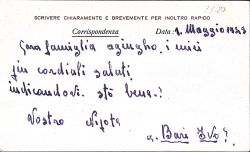 SCRIVERE CHIARAMENTE E BREVEMENTE PER INOLTRO RAPIDO
Corrispondenza Data 1. Maggio 1943
Cara famiglia i miei
piu cordiali saluti
indicandovi. stò bene.!
Vostro Nipote
Bari